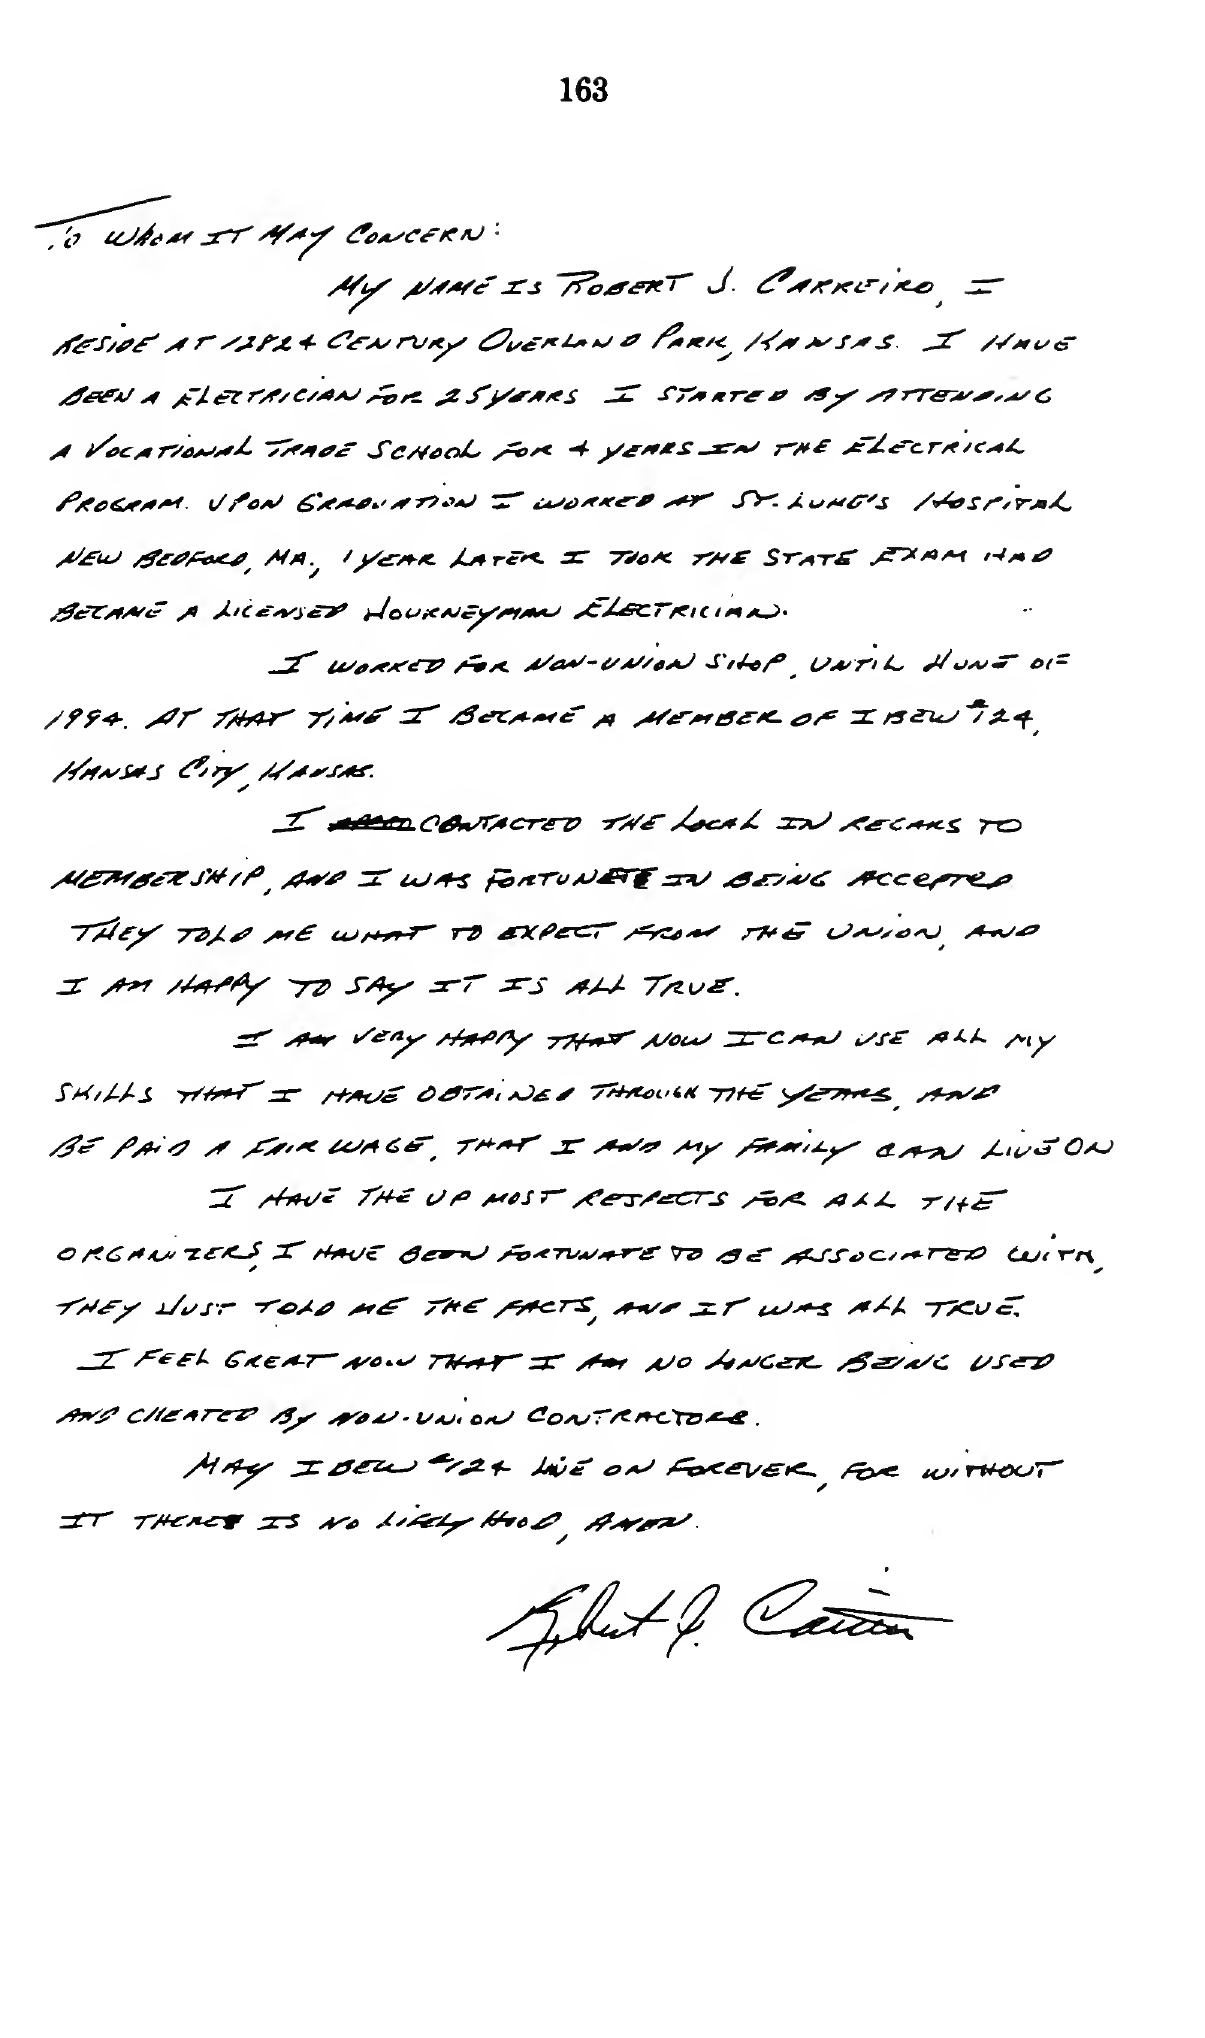 163
To WHOM IT MAY CONCERN:
MY NAME IS ROBERT J. CARREIRO, I
RESIDE AT 12824 CENTURY OVERLAND PARK, KANSAS. I HAVE
BEEN A ELECTRICIAN FOR 25 YEARS I STARTED BY ATTENDING
A VOCATIONAL TRADE SCHOOL FOR 4 YEARS IN THE ELECTRICAL
PROGRAM. UPON GRADUATION I WORKED AT ST. LUKE'S HOSPITAL
NEW BEDFORD, MA., 1 YEAR LATER I TOOK THE STATE EXAM HAD
BECAME A LICENSED JOURNEYMAN ELECTRICIAN.
I WORKED FOR NON-UNION SHOP, UNTIL JUNE OF
1994. AT THAT TIME I BECAME A MEMBER OF IBEW #124,
KANSAS CITY, KANSAS.
I CONTACTED THE LOCAL IN REGARS TO
MEMBERSHIP, AND I WAS FORTUNETE IN BEING ACCEPTED
THEY TOLD ME WHAT TO EXPECT FROM THE UNION, AND
I AM HAPPY TO SAY IT IS ALL TRUE.
I AM VERY HAPPY THAT NOW I CAN USE ALL MY
SKILLS THAT I HAVE OBTAINED THROUGH THE YEARS, AND
BE PAID A FAIR WAGE, THAT I AND MY FAMILY CAN LIVE ON
I HAVE THE UP MOST RESPECTS FOR ALL THE
ORGANIZERS, I HAVE BEEN FORTUNATE TO BE ASSOCIATED WITH,
THEY JUST TOLD ME THE FACTS, AND IT WAS ALL TRUE.
I FEEL GREAT NOW THAT I AM NO LONGER BEING USED
AND CHEATED BY NON-UNION CONTRACTORS.
MAY IBEW #124 LIVE ON FOREVER, FOR WITHOUT
IT THERE IS NO LIFELYHOOD, AMEN.
Robert J. Carreiro